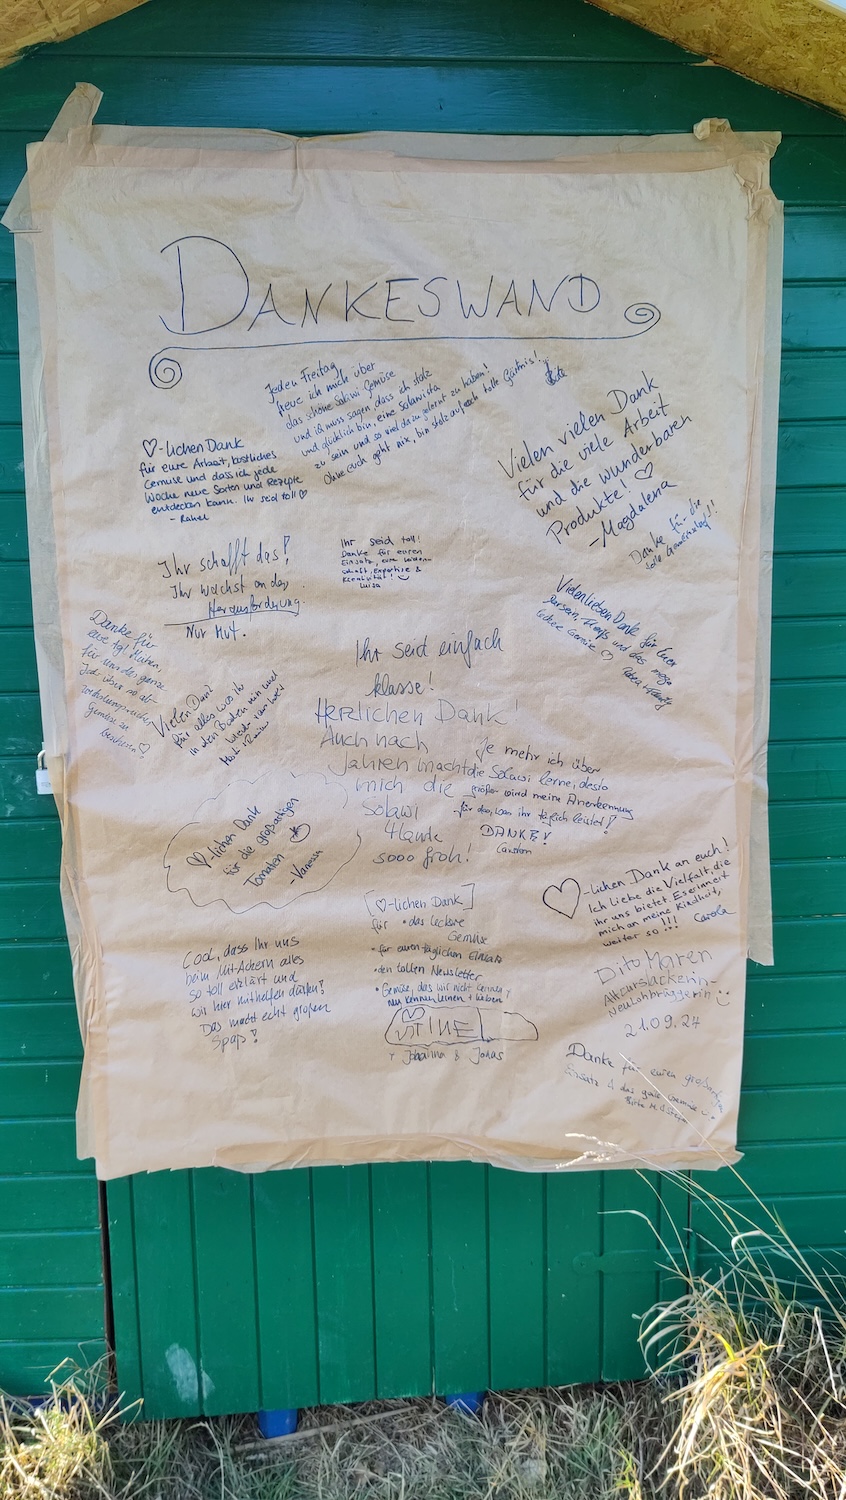 DANKESWAND
Jeden Freitag
freue ich mich über
das schöne Solawi Gemüse
und ich muss sagen, dass ich stolz
und glücklich bin, eine Solawista
zu sein und so viel dazu gelernt zu haben!
Ohne euch geht nix, bin stolz auf euch tolle Gärtnis!
♡-lichen Dank
für eure Arbeit, köstliches
Gemüse und dass ich jede
Woche neue Sorten und Rezepte
entdecken kann. Ihr seid toll ♡
- Rahel
Vielen vielen Dank
für die viele Arbeit
und die wunderbaren
Produkte! ♡
-Magdalena
Danke für die
tolle Gemeinschaft!!
Ihr schafft das!
Ihr wachst an der
Herausforderung.
Nur Mut.
Ihr seid toll!
Danke für euren
Einsatz, eure Leiden-
schaft, Expertise &
Kreativität! ☺
Luisa
Vielen lieben Dank für Euer
und das mega
leckere Gemüse ♡
Danke für
eure tgl. Mühen,
für uns das ganze
Jahr über so ab-
wechslungsreiches
Gemüse zu
♡
Vielen Dank
für alles was ihr
in den Boden rein und
wieder raus holt
Ihr seid einfach
klasse!
Herzlichen Dank!
Auch nach
Jahren macht
mich die
Solawi
4Lande
sooo froh!
Je mehr ich über
die Solawi lerne, desto
größer wird meine Anerkennung
für das, was ihr täglich leistet!
DANKE!
Carsten
♡-lichen Dank
für die großartigen
Tomaten
-Vanessa
♡-lichen Dank an euch!
Ich liebe die Vielfalt, die
ihr uns bietet. Es erinnert
mich an meine Kindheit,
weiter so!!! Carola
[♡-lichen Dank]
für • das leckere
Gemüse
• für euren täglichen Einsatz
• den tollen Newsletter
• Gemüse, das wir nicht kennen,
neu kennenlernen + lieben
+ Johanna & Jonas
Cool, dass Ihr uns
beim Mit-Ackern alles
so toll erklärt und
wir hier mithelfen dürfen!
Das macht echt großen
Spaß!
Dito Maren
Altcurslackerin-
Neulohbrüggerin ☺
21.09.24
Danke für euren großartigen
Einsatz & das gute Gemüse